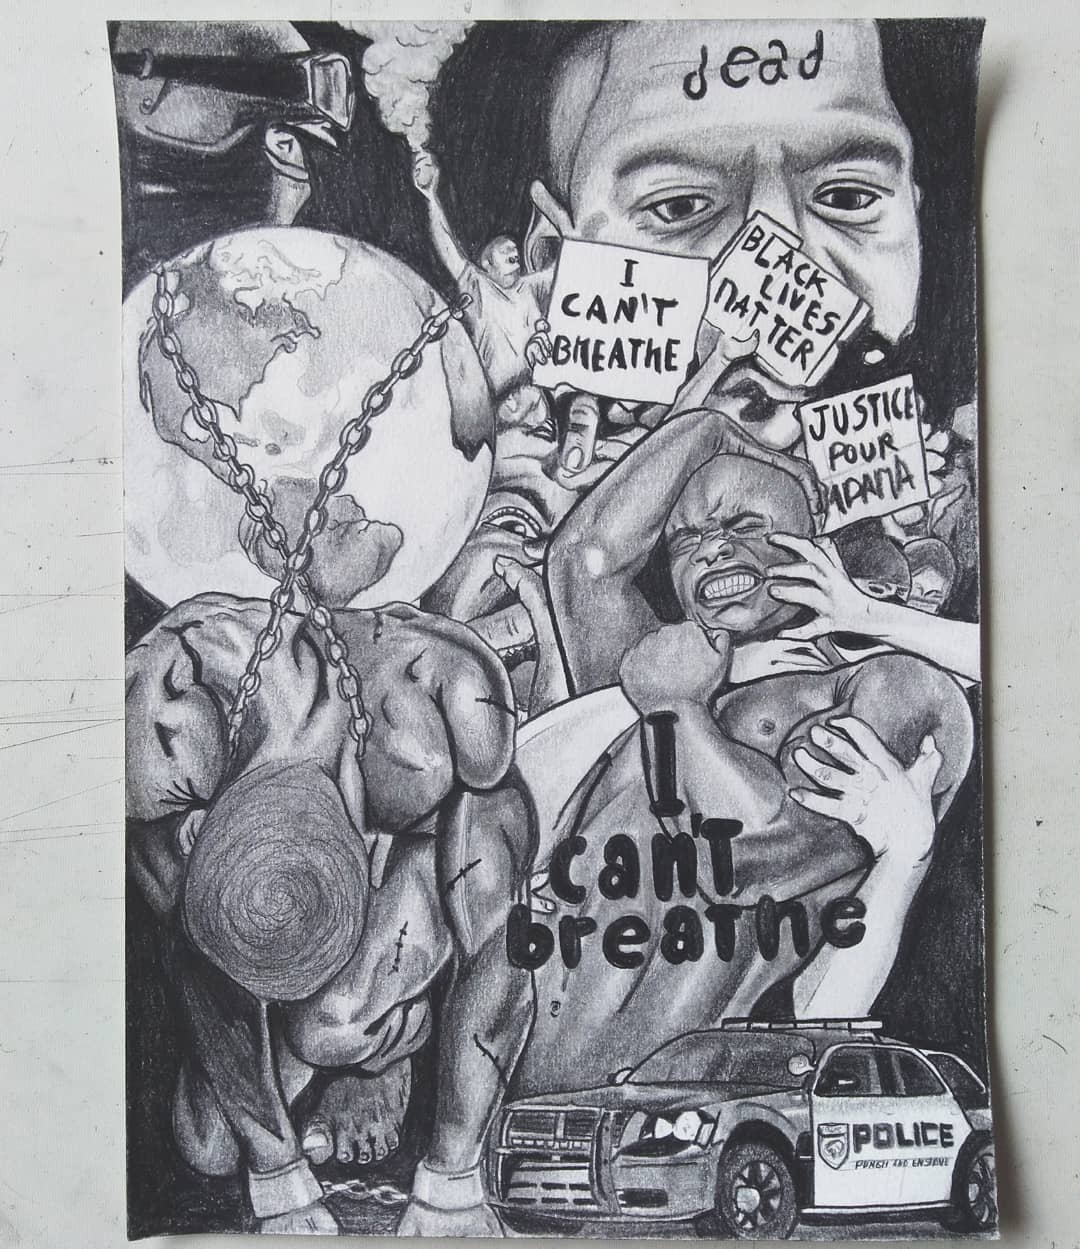 dead
I
CAN'T
BREATHE
BLACK
LIVES
MATTER
JUSTICE
POUR
ADAMA
I
can't
breathe
POLICE
PUNISH AND ENSLAVE